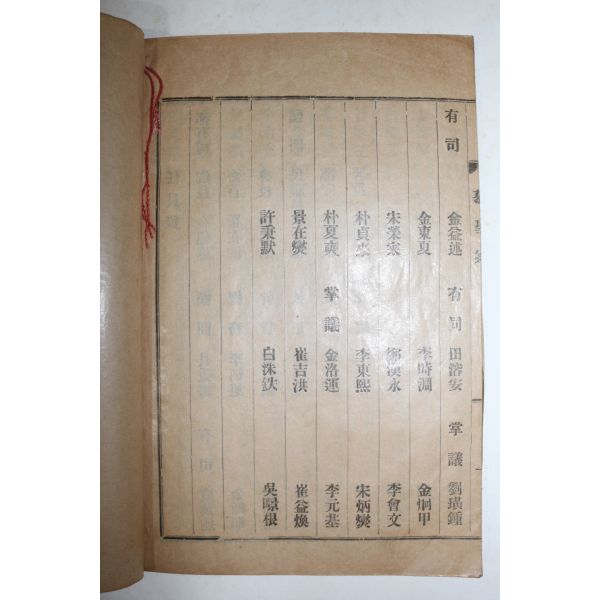 有司 金益述 有司 田溶安 掌議 劉璜鍾
金東夏 李時淵 金炯甲
宋榮 永 李會文
朴貞 李東熙 宋炳燮
朴夏奭 掌議 金洛運 李元基
景在燮 崔吉洪 崔益煥
許秉默 白洙鉄 吳暻根